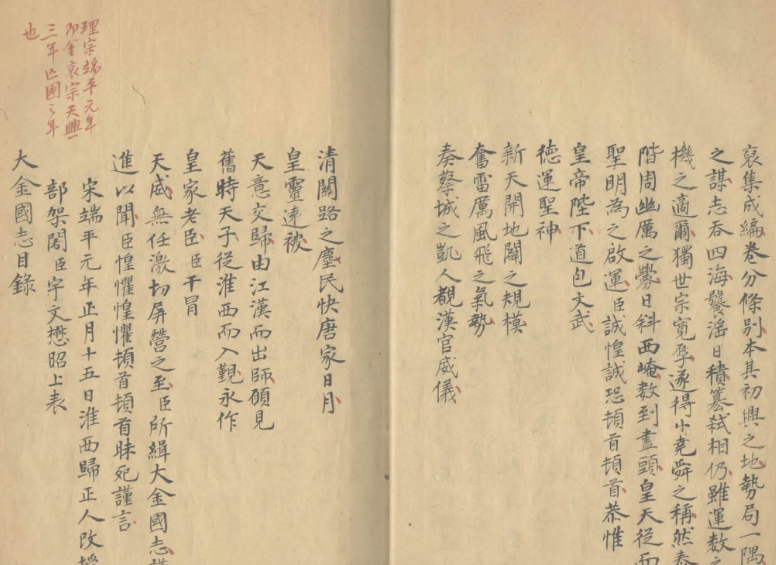 裒集成編卷分條別本其初興之地勢局一隅
之謀志吞四海鬟滛日積簒弑相仍雖運數之
機之適爾獨世宗寛厚遂得小堯舜之稱然泰
階周幽厲之釁日斜西崦数到盡頭皇天從而
聖明為之啟運臣誠惶誠恐頓首頓首恭惟
皇帝陛下道包文武
徳運聖神
新天開地闢之規模
奮雷厲風飛之氣勢
奏蔡城之凱人覩漢官威儀
清闕路之塵民快唐家日月
皇靈逺被
天意交歸由江漢而出師願見
舊時天子從淮西而入覲永作
皇家老臣臣干冒
天威無任激切屏營之至臣所緝大金國志謹
進以聞臣惶懼惶懼頓首頓首昧死謹言
宋端平元年正月十五日淮西歸正人改授
部架閣臣宇文懋昭上表
大金國志目錄
理宗端平元年
即金哀宗天興
三年亡國之年
也